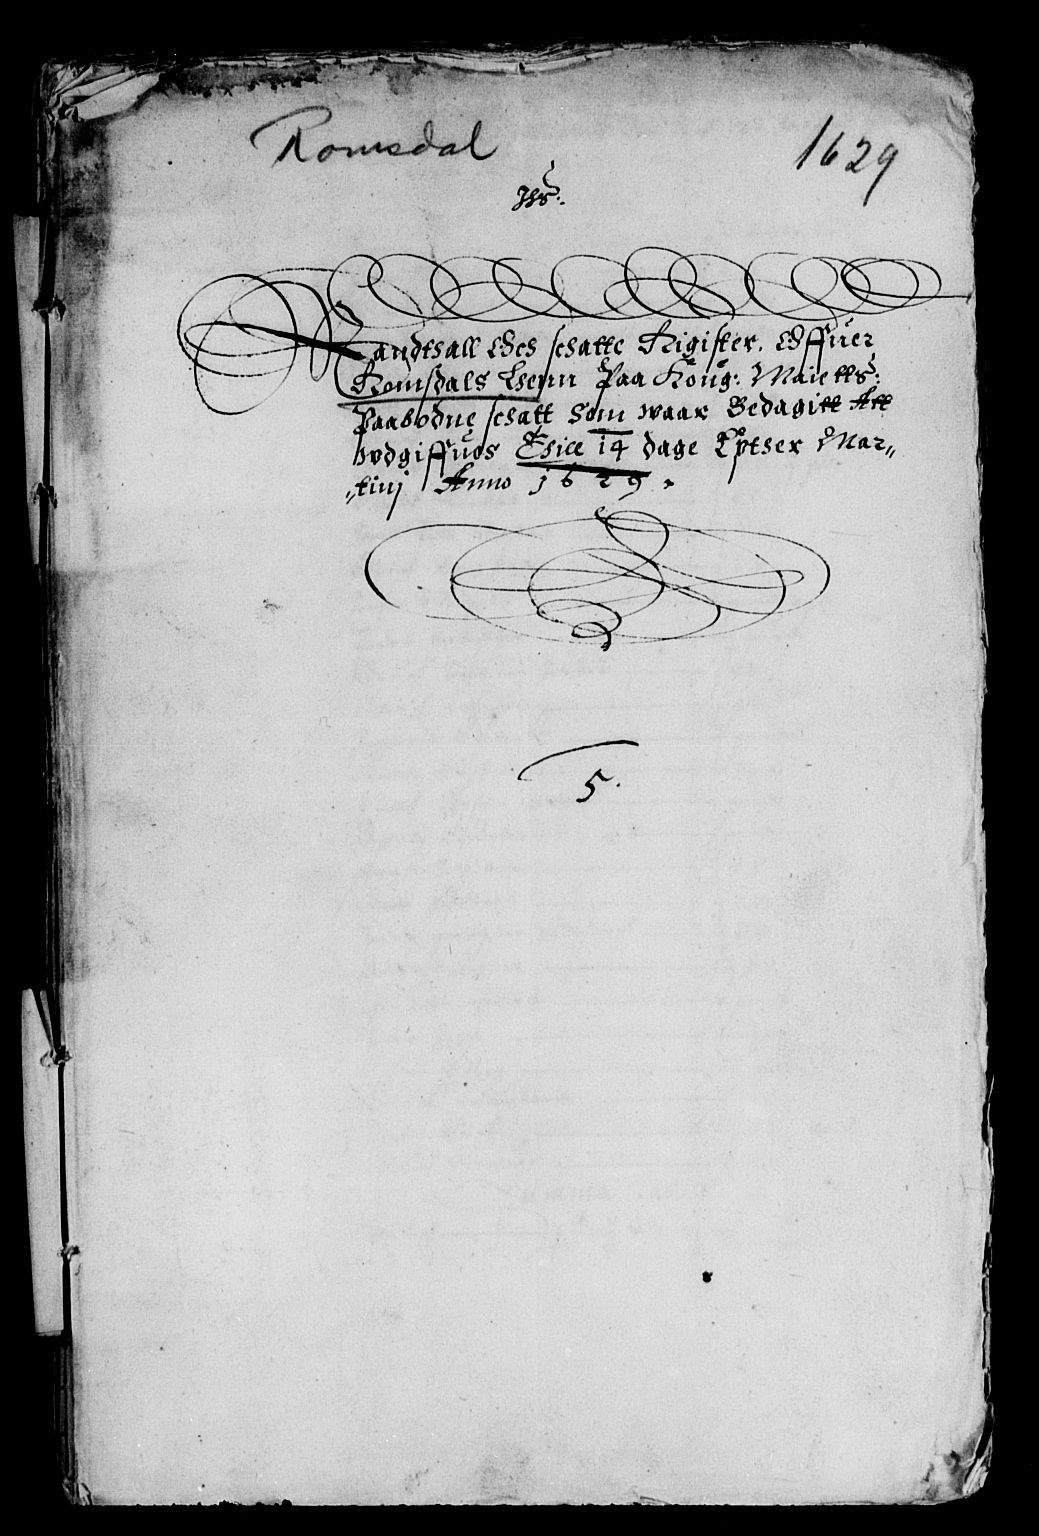 Romsdal 1629
Jhs:
Mandthall Och schatte Rigister, Offuer
Romsdals Lhenn Paa Kong: Maietts:
Paabodne schatt Som waar Bedagitt Att
wdgiffues Thiee 14 dage Epther Mar„
„tinj Anno 1629.
5.